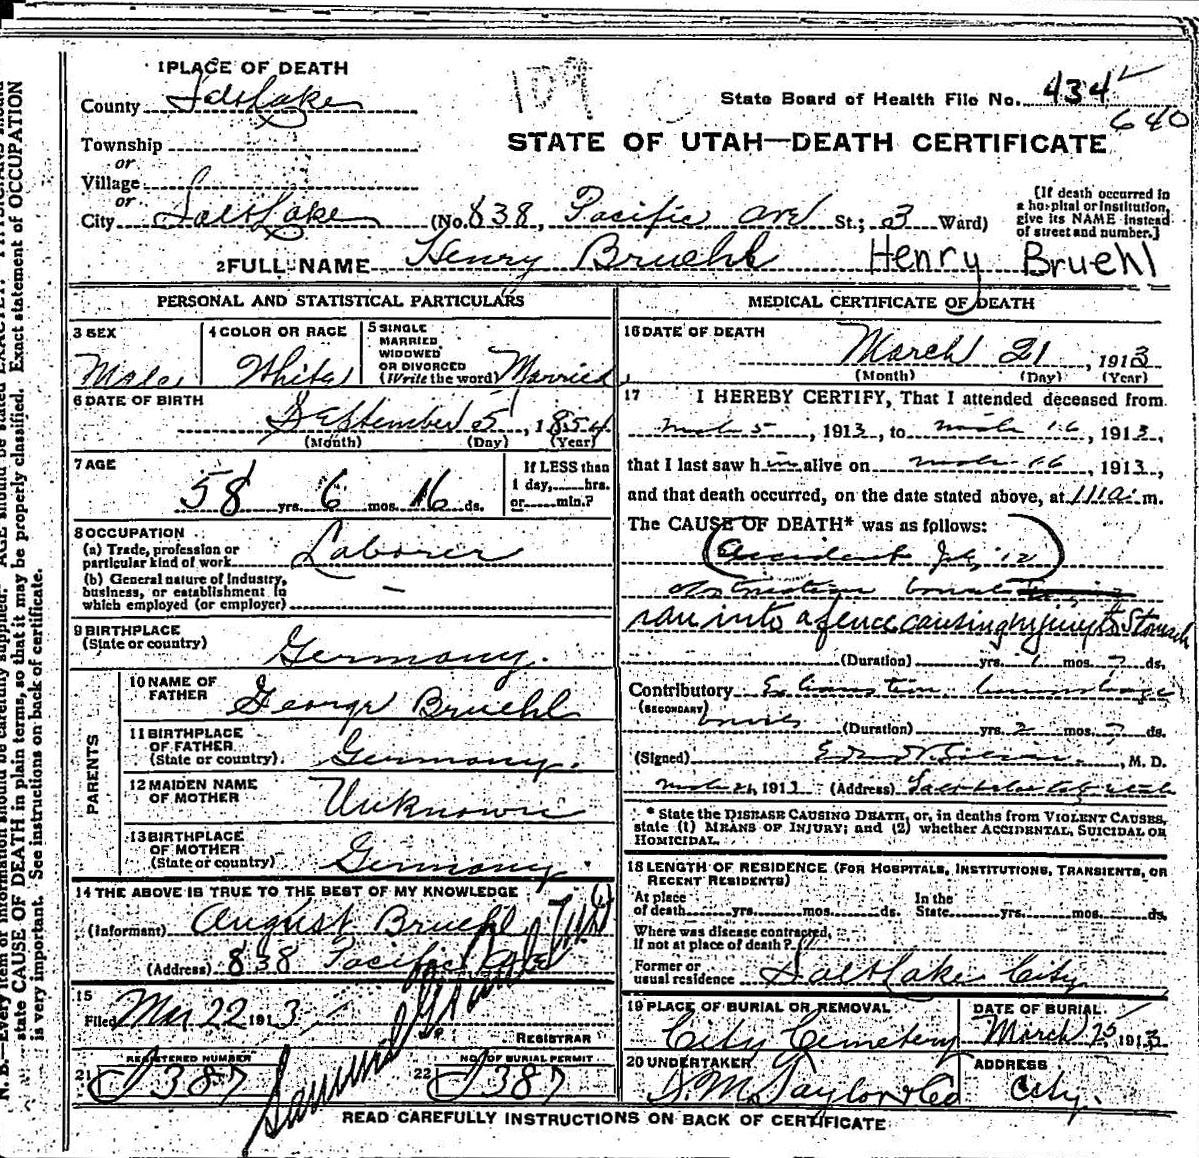 1 PLACE OF DEATH
County Salt Lake
109
State Board of Health File No. 434
640
STATE OF UTAH—DEATH CERTIFICATE
Township
or
Village
or
City Salt Lake (No. 838, Pacific Ave St.; 3 Ward)
[If death occurred in a hospital or institution, give its NAME instead of street and number.]
2 FULL NAME Henry Bruehl Henry Bruehl
PERSONAL AND STATISTICAL PARTICULARS
3 SEX
Male
4 COLOR OR RACE
White
5 SINGLE
MARRIED
WIDOWED
OR DIVORCED
(Write the word) Married
6 DATE OF BIRTH
September 5, 1854
(Month) (Day) (Year)
7 AGE
58 yrs. 6 mos. 16 ds.
If LESS than
1 day, hrs.
or min.?
8 OCCUPATION
(a) Trade, profession or
particular kind of work Laborer
(b) General nature of industry,
business, or establishment in
which employed (or employer) —
9 BIRTHPLACE
(State or country)
Germany.
PARENTS
10 NAME OF
FATHER
George Bruehl
11 BIRTHPLACE
OF FATHER
(State or country)
Germany.
12 MAIDEN NAME
OF MOTHER
Unknown
13 BIRTHPLACE
OF MOTHER
(State or country)
Germany.
14 THE ABOVE IS TRUE TO THE BEST OF MY KNOWLEDGE
(Informant) August Bruehl
(Address) 838 Pacific Ave
15
Filed Mar 22 1913,
REGISTRAR
REGISTERED NUMBER
21 J 387
NO. OF BURIAL PERMIT
22 J 387
MEDICAL CERTIFICATE OF DEATH
16 DATE OF DEATH
March 21, 1913
(Month) (Day) (Year)
17 I HEREBY CERTIFY, That I attended deceased from
Mch 5, 1913, to Mch 16, 1913,
that I last saw him alive on Mch 16, 1913,
and that death occurred, on the date stated above, at m.
The CAUSE OF DEATH* was as follows:
accident 12
obstruction
ran into a fence causing injury to Stomach
(Duration) yrs. mos. ds.
Contributory
(SECONDARY)
(Duration) yrs. 2 mos. ? ds.
(Signed) , M. D.
Mch 21, 1913 (Address)
* State the DISEASE CAUSING DEATH, or, in deaths from VIOLENT CAUSES,
state (1) MEANS OF INJURY; and (2) whether ACCIDENTAL, SUICIDAL OR
HOMICIDAL.
18 LENGTH OF RESIDENCE (FOR HOSPITALS, INSTITUTIONS, TRANSIENTS, OR
RECENT RESIDENTS)
At place
of death yrs. mos. ds.
In the
State yrs. mos. ds.
Where was disease contracted,
if not at place of death?
Former or
usual residence Salt Lake City
19 PLACE OF BURIAL OR REMOVAL
City Cemetery
DATE OF BURIAL
March 25 1913
20 UNDERTAKER
S. M. Taylor & Co
ADDRESS
City.
READ CAREFULLY INSTRUCTIONS ON BACK OF CERTIFICATE
state CAUSE OF DEATH in plain terms, so that it may be properly classified. Exact statement of OCCUPATION
is very important. See instructions on back of certificate.